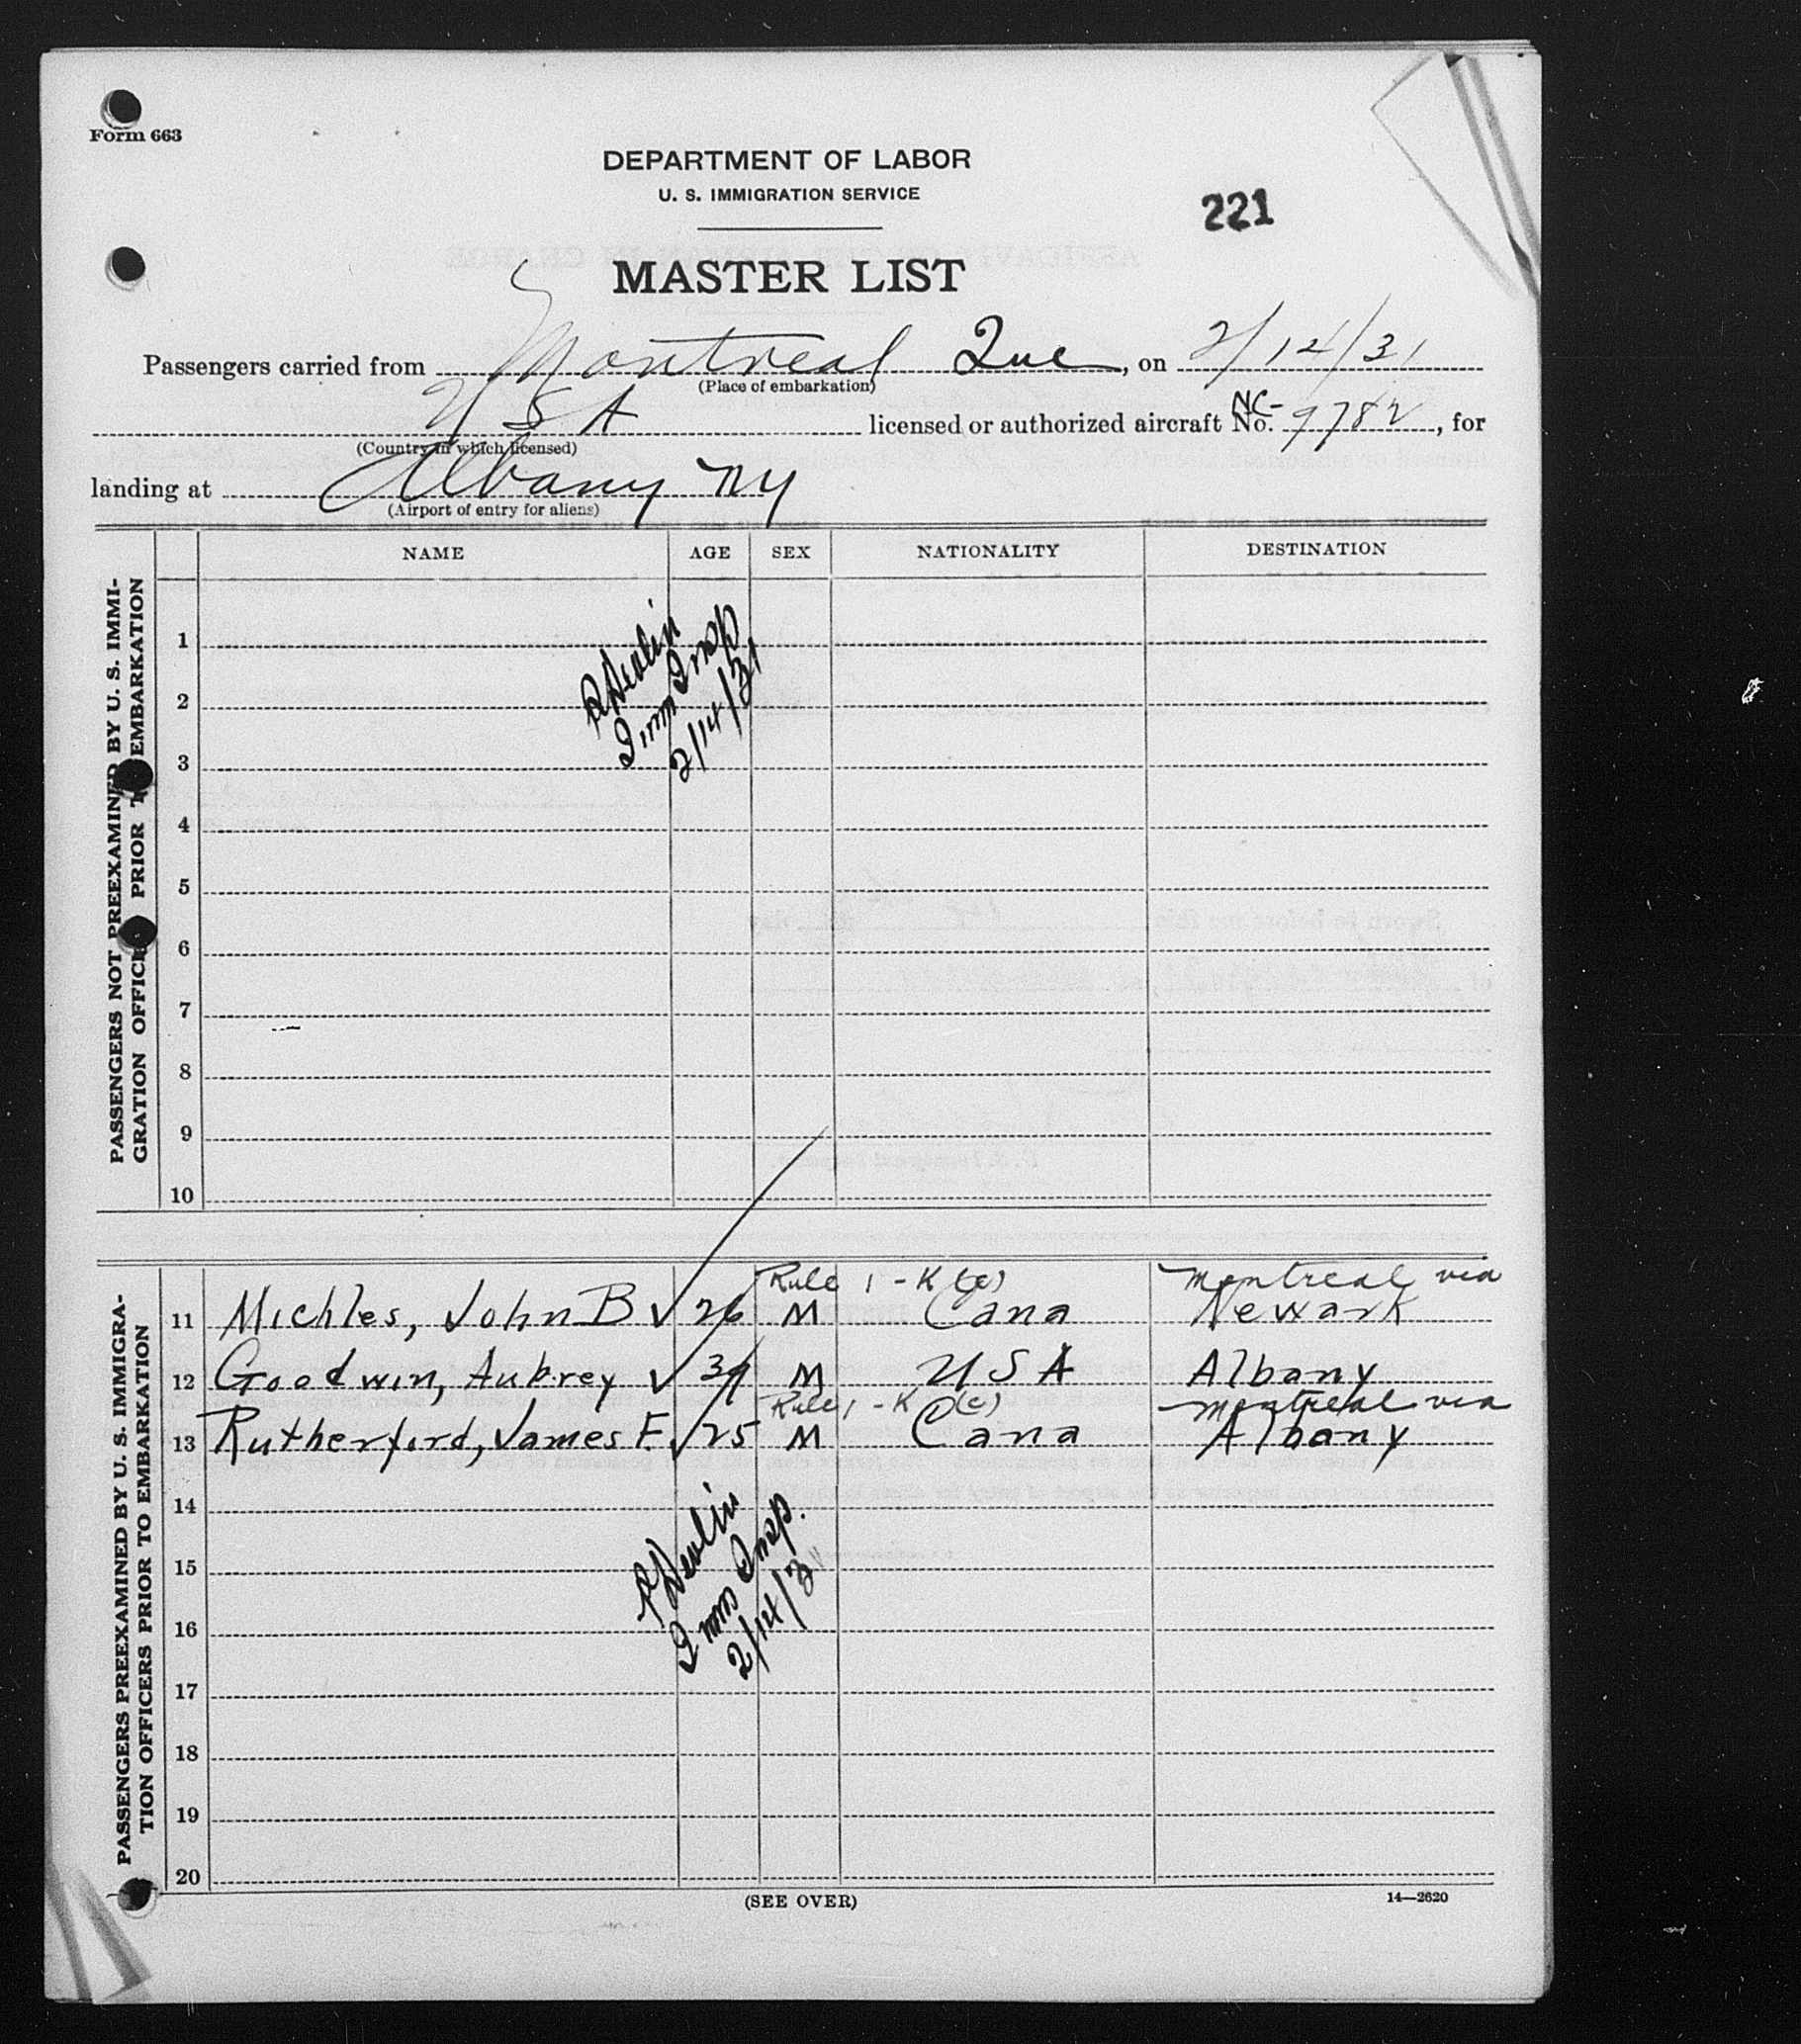 Form 663
DEPARTMENT OF LABOR
U. S. IMMIGRATION SERVICE
221
MASTER LIST
Passengers carried from Montreal Que, on 2/14/31
(Place of embarkation)
USA licensed or authorized aircraft NC- No. 9782, for
(Country in which licensed)
landing at Albany NY
(Airport of entry for aliens)
NAME AGE SEX NATIONALITY DESTINATION
PASSENGERS NOT PREEXAMINED BY U. S. IMMI-
GRATION OFFICERS PRIOR TO EMBARKATION
1
2
3
4
5
6
7
8
9
10
Devlin
Imm Insp
2/14/31
PASSENGERS PREEXAMINED BY U. S. IMMIGRA-
TION OFFICERS PRIOR TO EMBARKATION
Rule 1 - K (e) Montreal via
11 Michles, John B ✓ 26 M Cana Newark
12 Goodwin, Aubrey ✓ 39 M USA Albany
Rule 1 - K (e) Montreal via
13 Rutherford, James F. ✓ 25 M Cana Albany
14
15
16
17
18
19
20
Devlin
Imm Insp.
2/14/31
(SEE OVER)
14—2620